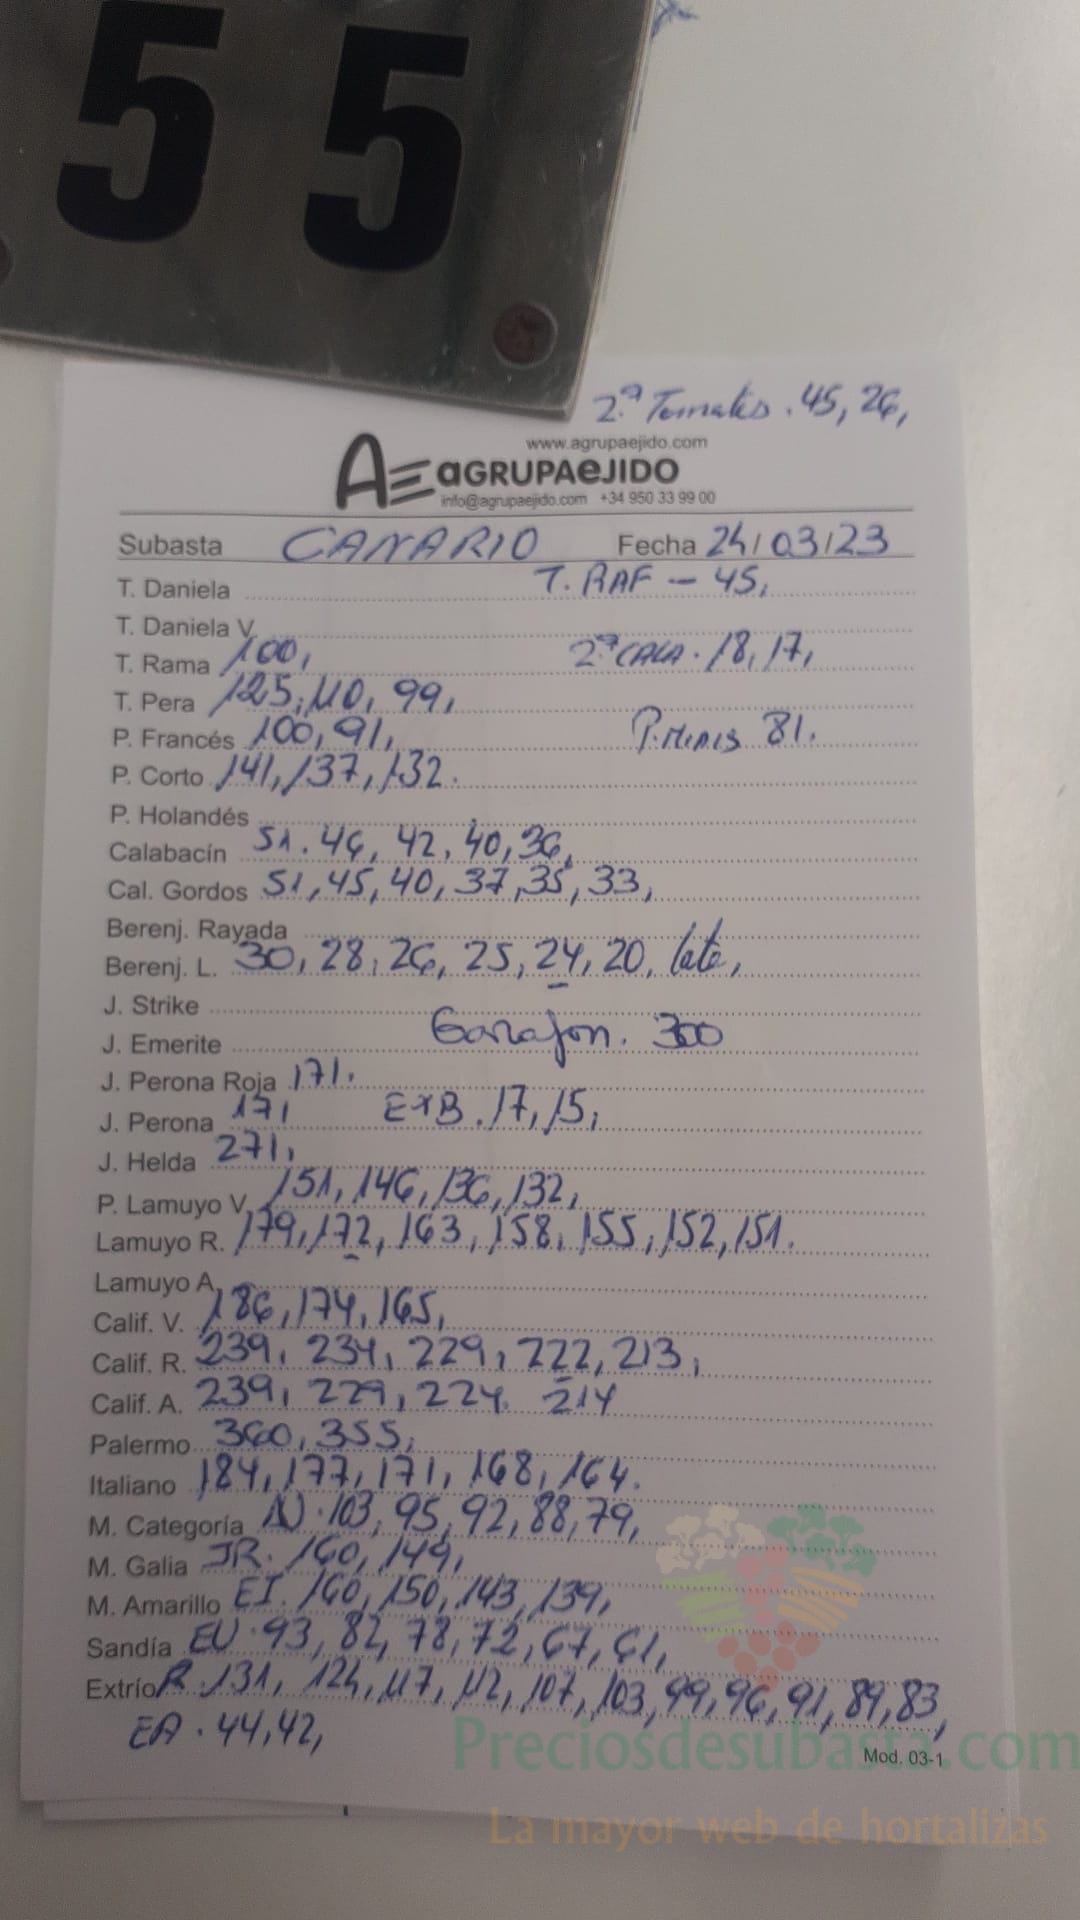 55
2ª Tomates. 45, 26,
www.agrupaejido.com
AE aGRUPAeJIDO
info@agrupaejido.com +34 950 33 99 00
Subasta CANARIO Fecha 24/03/23
T. Daniela T. RAF - 45,
T. Daniela V.
T. Rama 100, 2ª CALA. 18, 17,
T. Pera 125, 110, 99,
P. Francés 100, 91, P. Minis 81.
P. Corto 141, 137, 132.
P. Holandés
Calabacín 51. 46, 42, 40, 36,
Cal. Gordos 51, 45, 40, 37, 35, 33,
Berenj. Rayada
Berenj. L. 30, 28, 26, 25, 24, 20, late,
J. Strike
J. Emerite Garrafon. 300
J. Perona Roja 171.
J. Perona 171 EXB. 17, 15,
J. Helda 271,
P. Lamuyo V. 151, 146, 136, 132,
Lamuyo R. 179, 172, 163, 158, 155, 152, 151.
Lamuyo A.
Calif. V. 186, 174, 165,
Calif. R. 239, 234, 229, 222, 213,
Calif. A. 239, 229, 224. 214
Palermo 360, 355,
Italiano 184, 177, 171, 168, 164.
M. Categoría AJ. 103, 95, 92, 88, 79,
M. Galia JR. 160, 149,
M. Amarillo EI. 160, 150, 143, 139,
Sandía EU. 93, 82, 78, 72, 67, 61,
Extrío R. 131, 124, 117, 112, 107, 103, 99, 96, 91, 89, 83,
EA. 44, 42,
Preciosdesubasta.com
Mod. 03-1
La mayor web de hortalizas